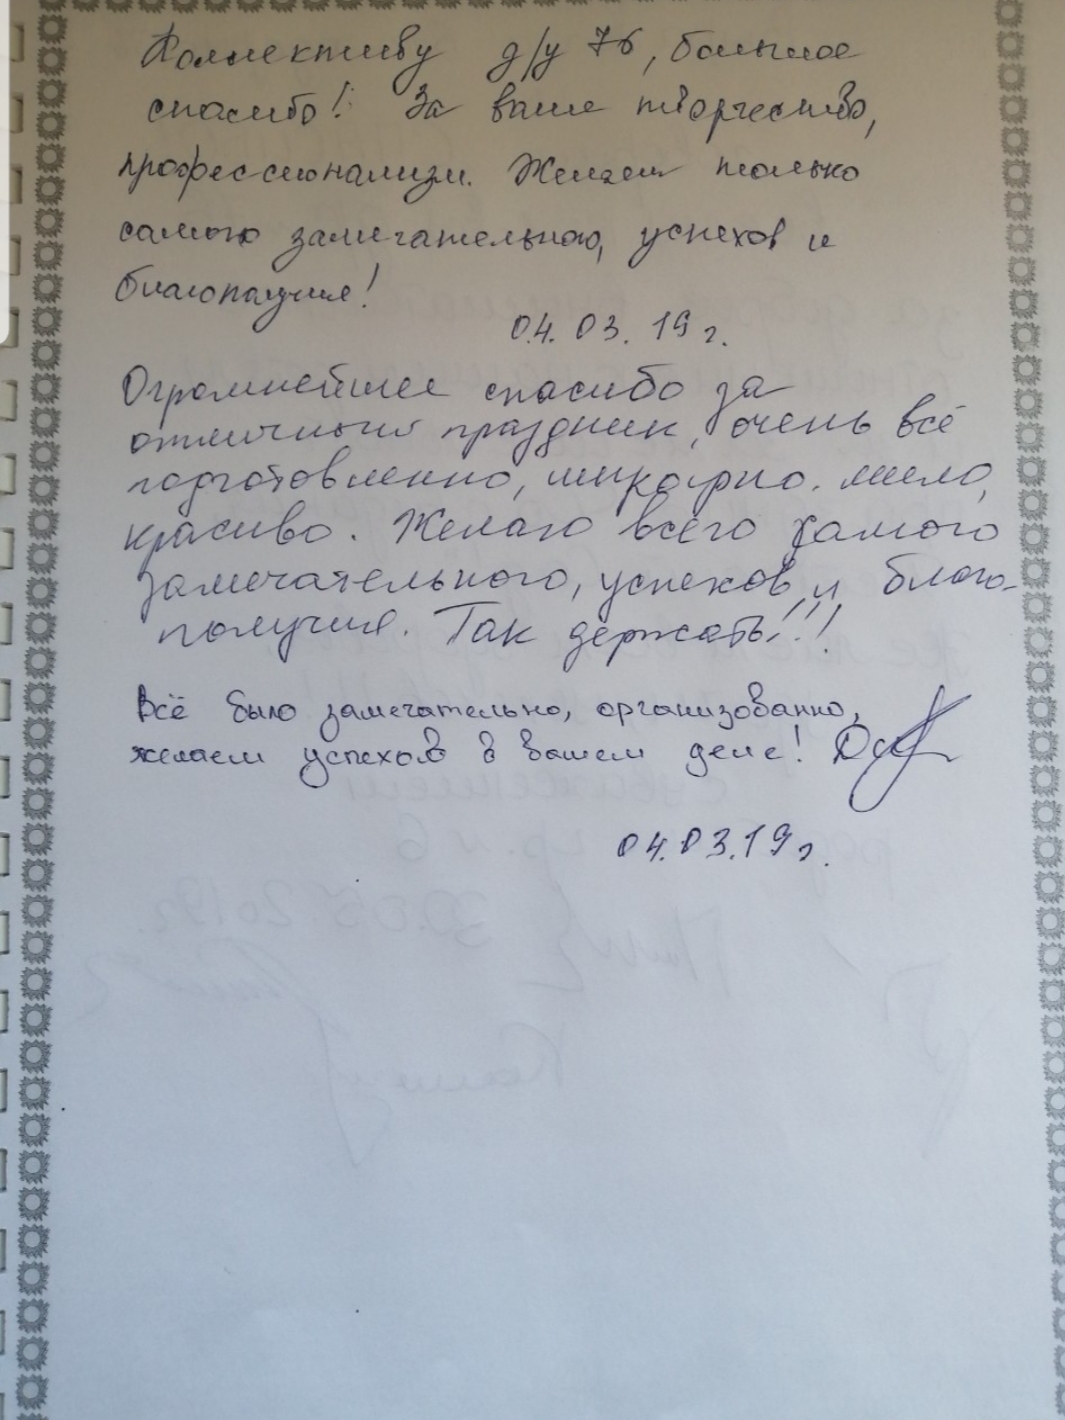 Коллективу д/у 76, большое
спасибо! За ваше творчество,
профессионализм. Желаем только
самого замечательного, успехов и
благополучия!
04.03.19 г.
Огромнейшее спасибо за
отличный праздник, очень всё
подготовленно, шикарно. мило,
красиво. Желаю всего самого
замечательного, успехов и благо-
получия. Так держать!!!
Всё было замечательно, организованно,
желаем успехов в вашем деле!
04.03.19 г.